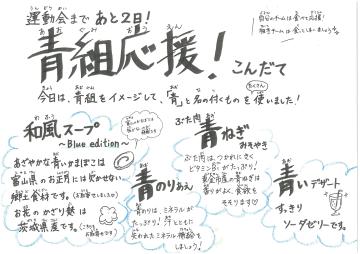 運動会まで あと2日!
青組応援! こんだて
自分のチームは食べて応援!
今日は、青組をイメージして、「青」と名の付くものをたくさん使いました!
和風スープ
~Blue edition~
あざやかな青いかまぼこは
富山県のお正月には欠かせない
郷土食材です。
お花のかざり麩は
茨城県産です。
青のりあえ
青のりは、ミネラルが
たっぷり! 汗とともに
失われたミネラル補給を
しましょう!
ぶた肉
青ねぎ
みそやき
ぶた肉は、つかれに効く
ビタミンB₁がたっぷり!
青ねぎは
香りがよく、食欲を
そそります♡
青いデザート
すっきり
ソーダゼリーです。